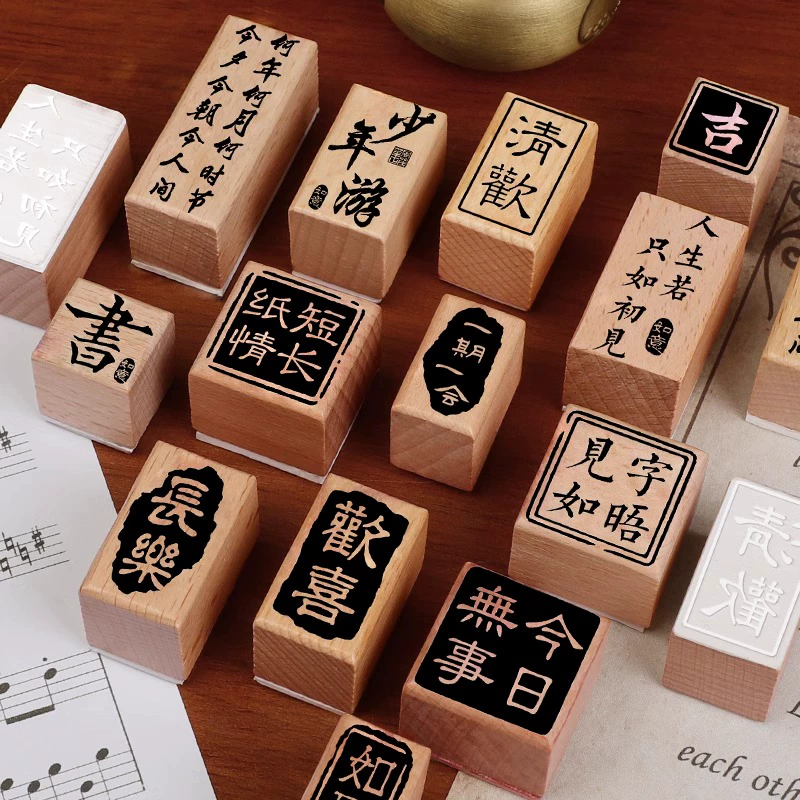 人生若
只如初見
何年何月何时节
今夕今朝今人间
少年游
如意
清歡
吉
書
如意
纸短
情长
一期一会
人生若
只如初見
如意
見字
如晤
長樂
歡喜
今日
無事
清歡
如
each other